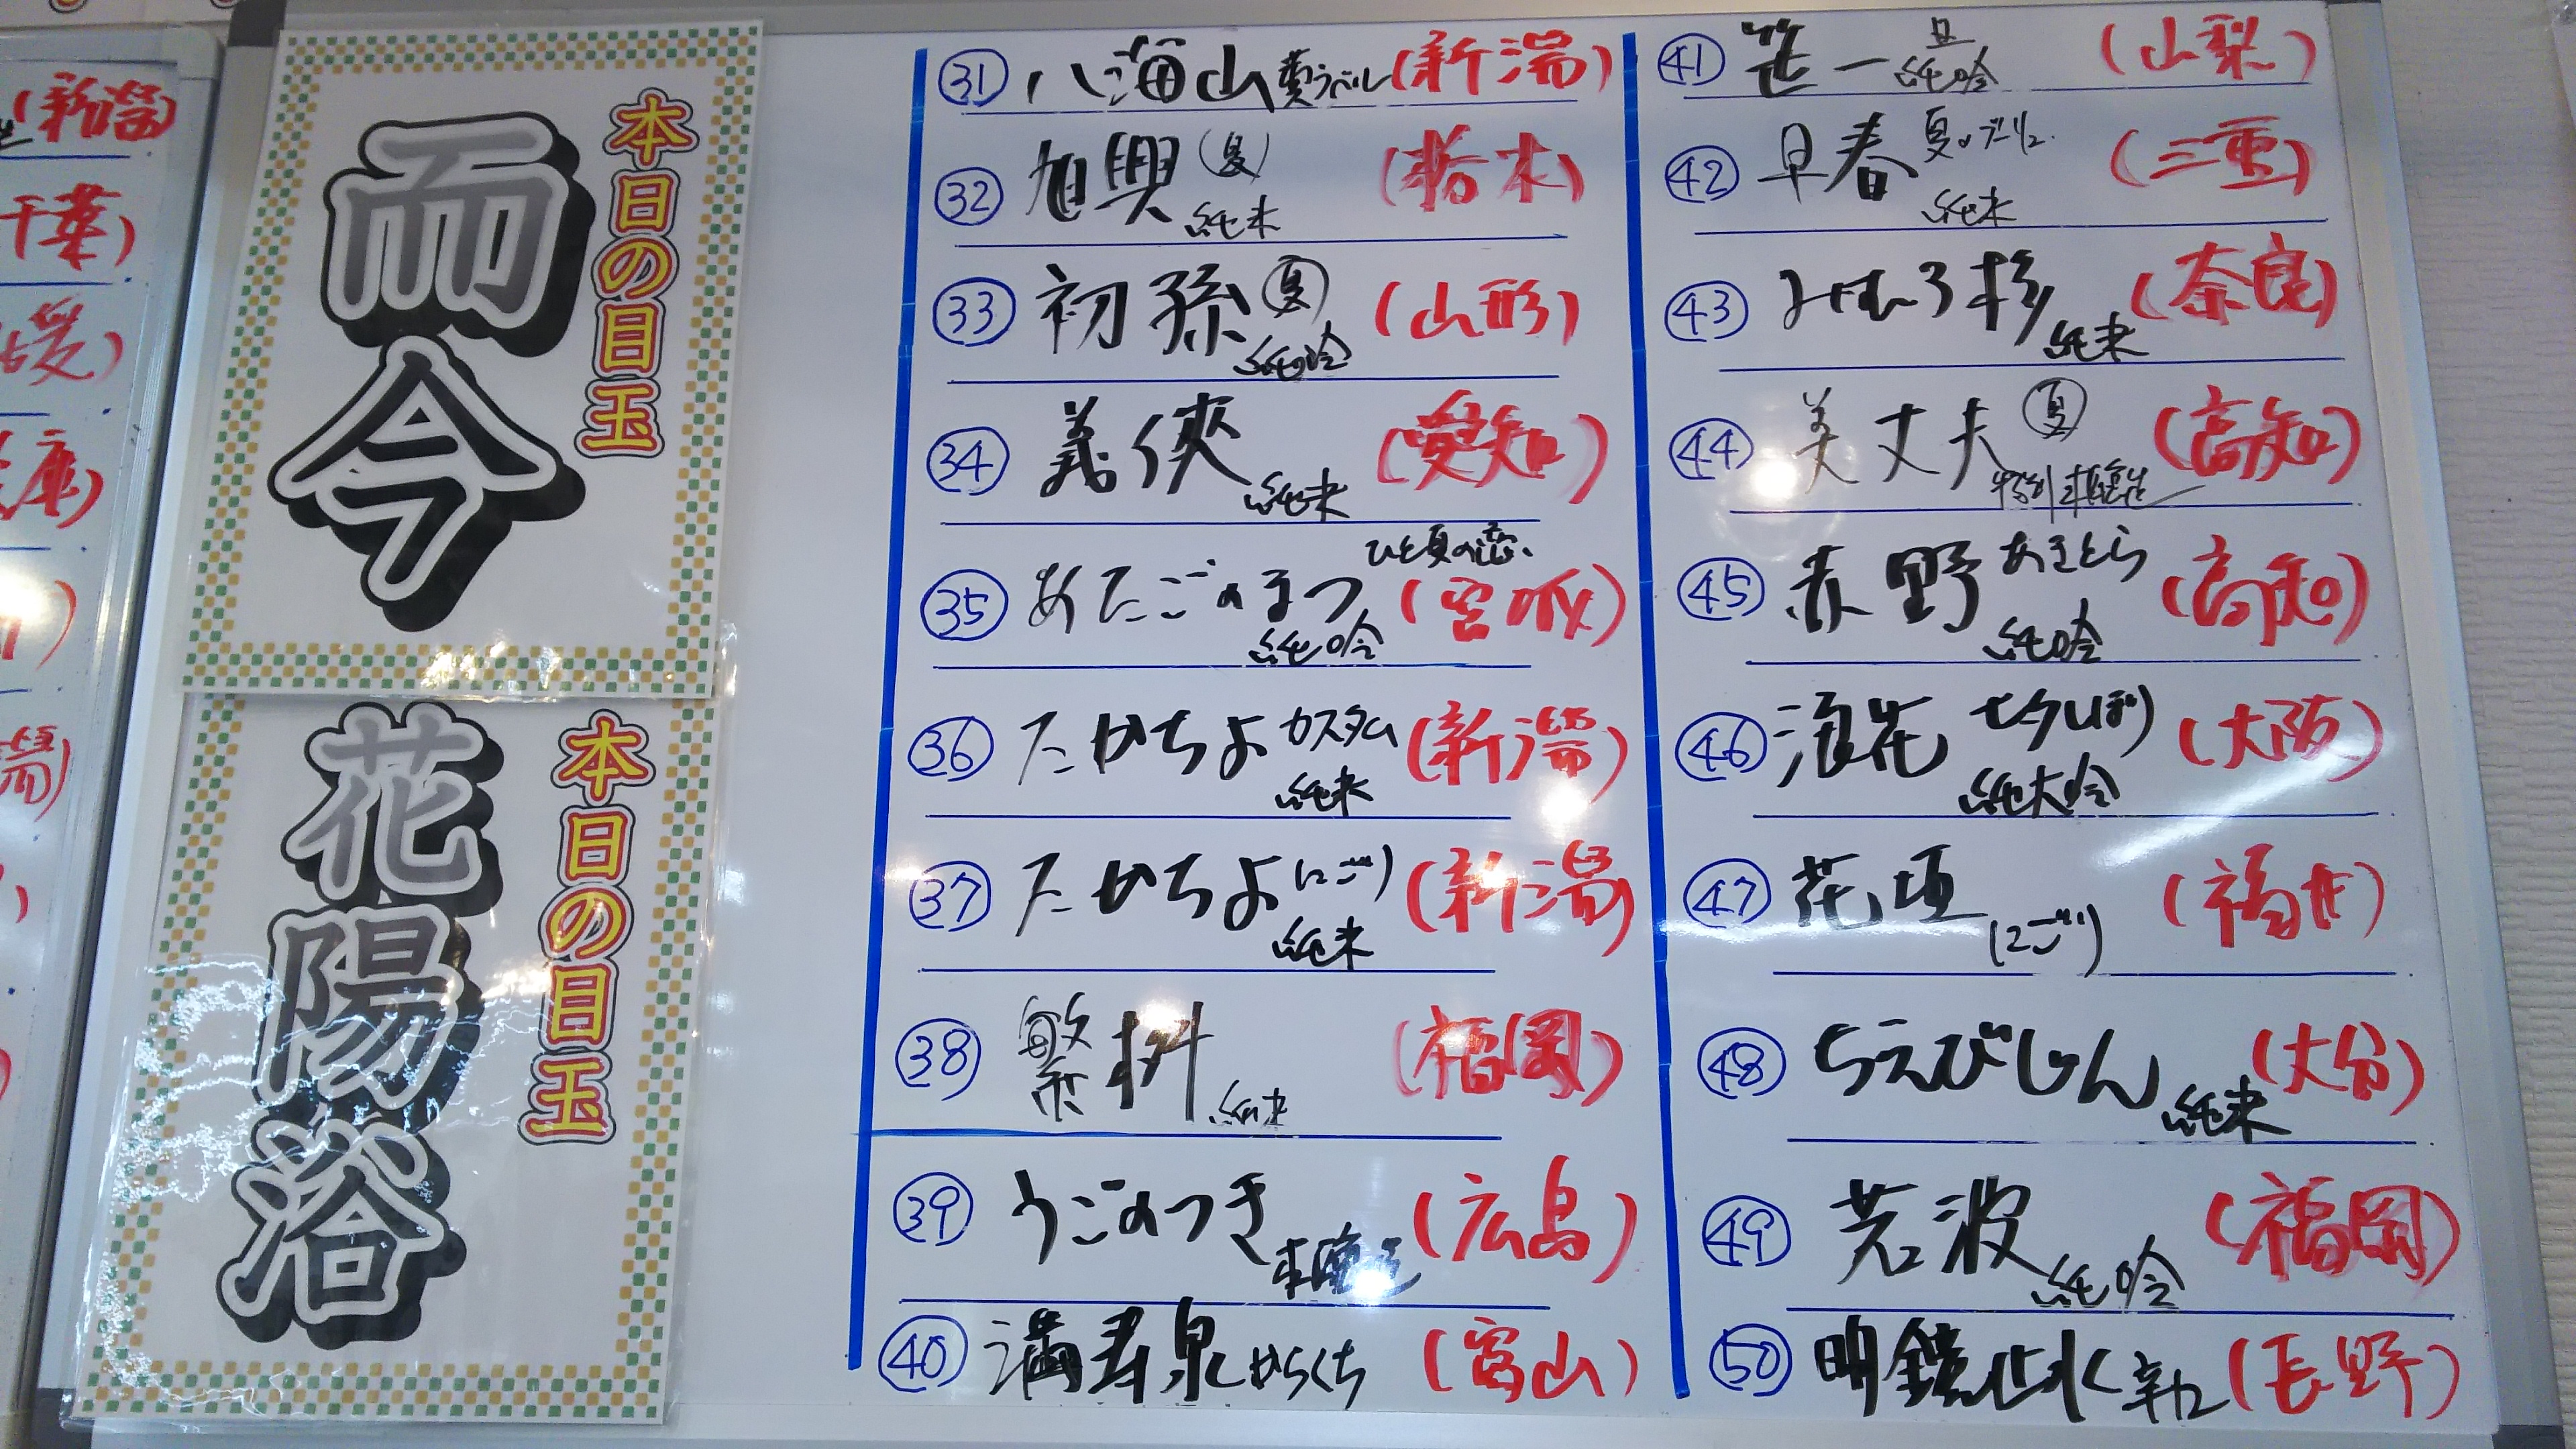 (新潟)
千葉)
媛)
庫)
潟)
本日の目玉
而今
本日の目玉
花陽浴
㉛ 八海山 夏ラベル (新潟)
㉜ 旭興 (夏) 純米 (栃木)
㉝ 初孫 夏 純吟 (山形)
㉞ 義侠 純米 (愛知)
㉟ あたごのまつ ひと夏の恋 純吟 (宮城)
㊱ たかちよ カスタム 純米 (新潟)
㊲ たかちよ にごり 純米 (新潟)
㊳ 繁桝 純米 (福岡)
㊴ うごのつき 本醸造 (広島)
㊵ 満寿泉 からくち (富山)
㊶ 笹一 純吟 (山梨)
㊷ 早春 夏の 純米 (三重)
㊸ みむろ杉 純米 (奈良)
㊹ 美丈夫 夏 特別本醸造 (高知)
㊺ 赤野 あきとら 純吟 (高知)
㊻ 浪花 七夕しぼり 純大吟 (大阪)
㊼ 花垣 (にごり) (福井)
㊽ ちえびじん 純米 (大分)
㊾ 若波 純吟 (福岡)
㊿ 明鏡止水 辛口 (長野)